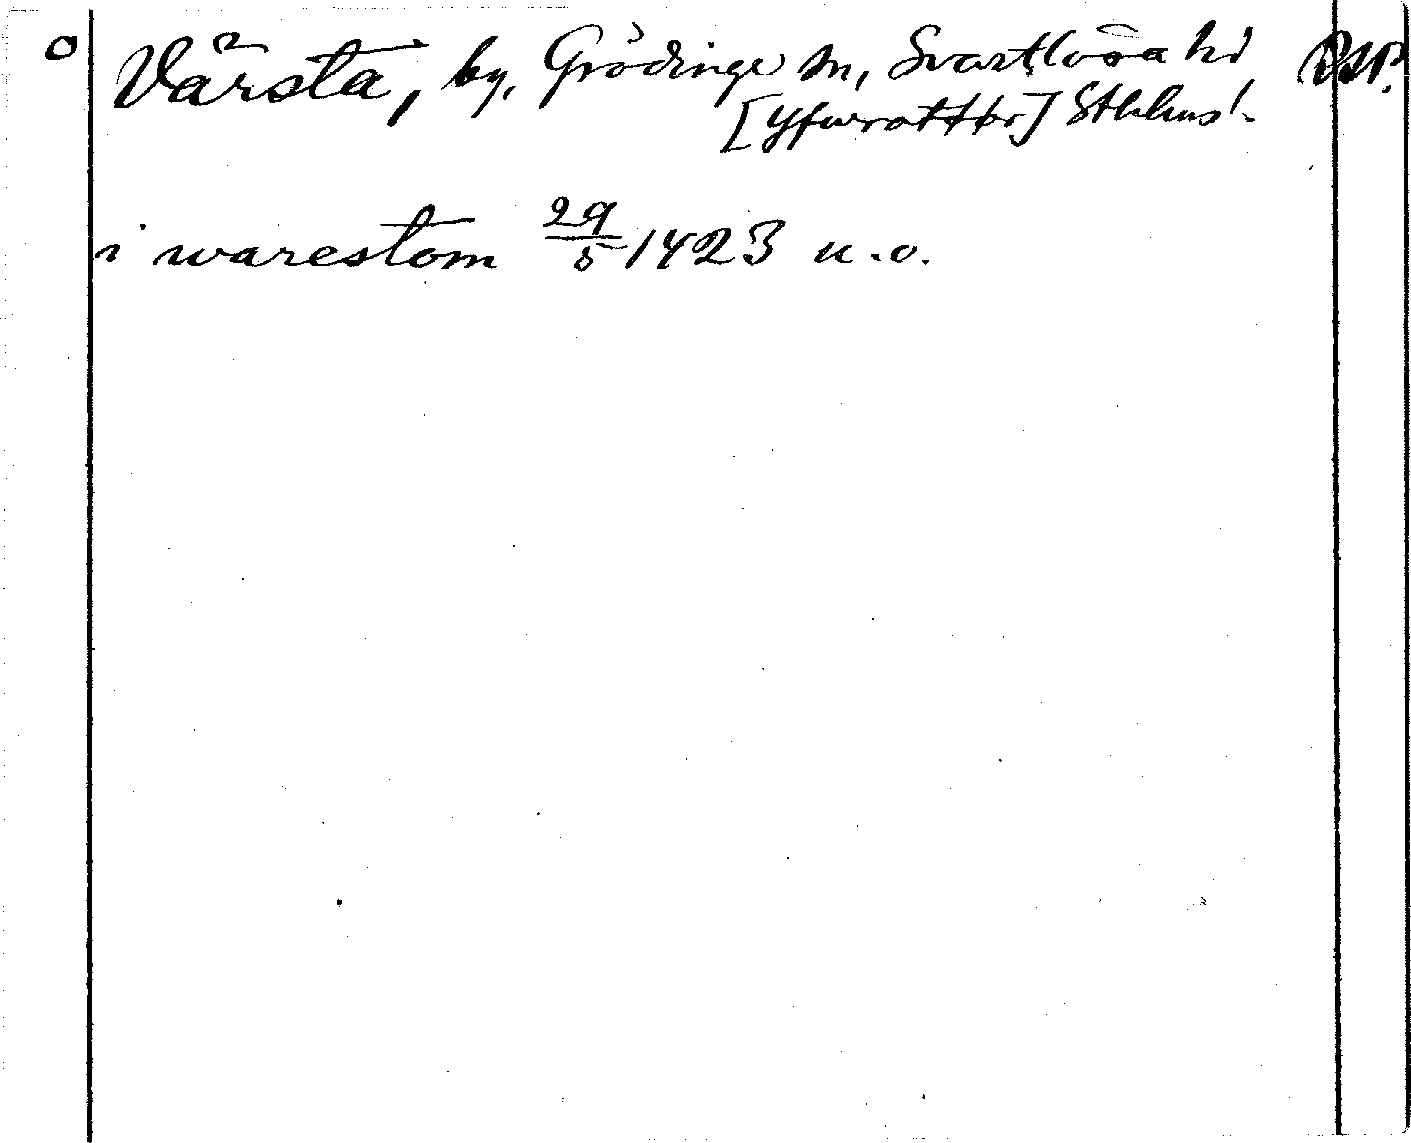 o Vårsta, by, Grödinge sn, Svartlösa hd RSP.
[Yfwrattbr] Sthlms l.
i warestom 29/5 1423 u.o.